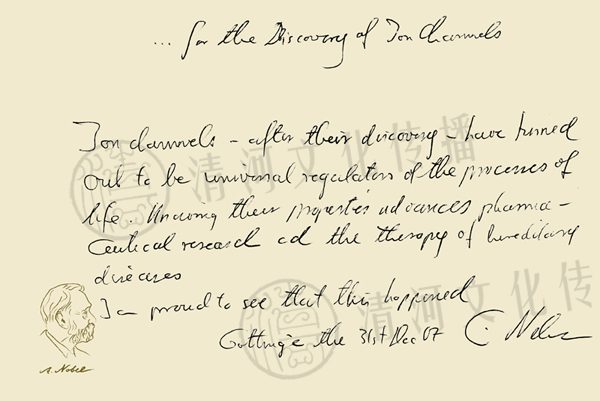 ... for the Discovery of Ion Channels
Ion channels - after their discovery - have turned
out to be universal regulators of the processes of
life. Knowing their properties advances pharma-
ceutical research ad the therapy of hereditary
diseases
I am proud to see that this happened
Göttingen the 31st Dec 07 E. Neher
A. Nobel
清河文化传播
清河文化传